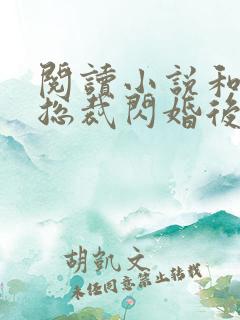 閱讀小說和
總裁閃婚後
胡凱文
未經同意禁止轉載